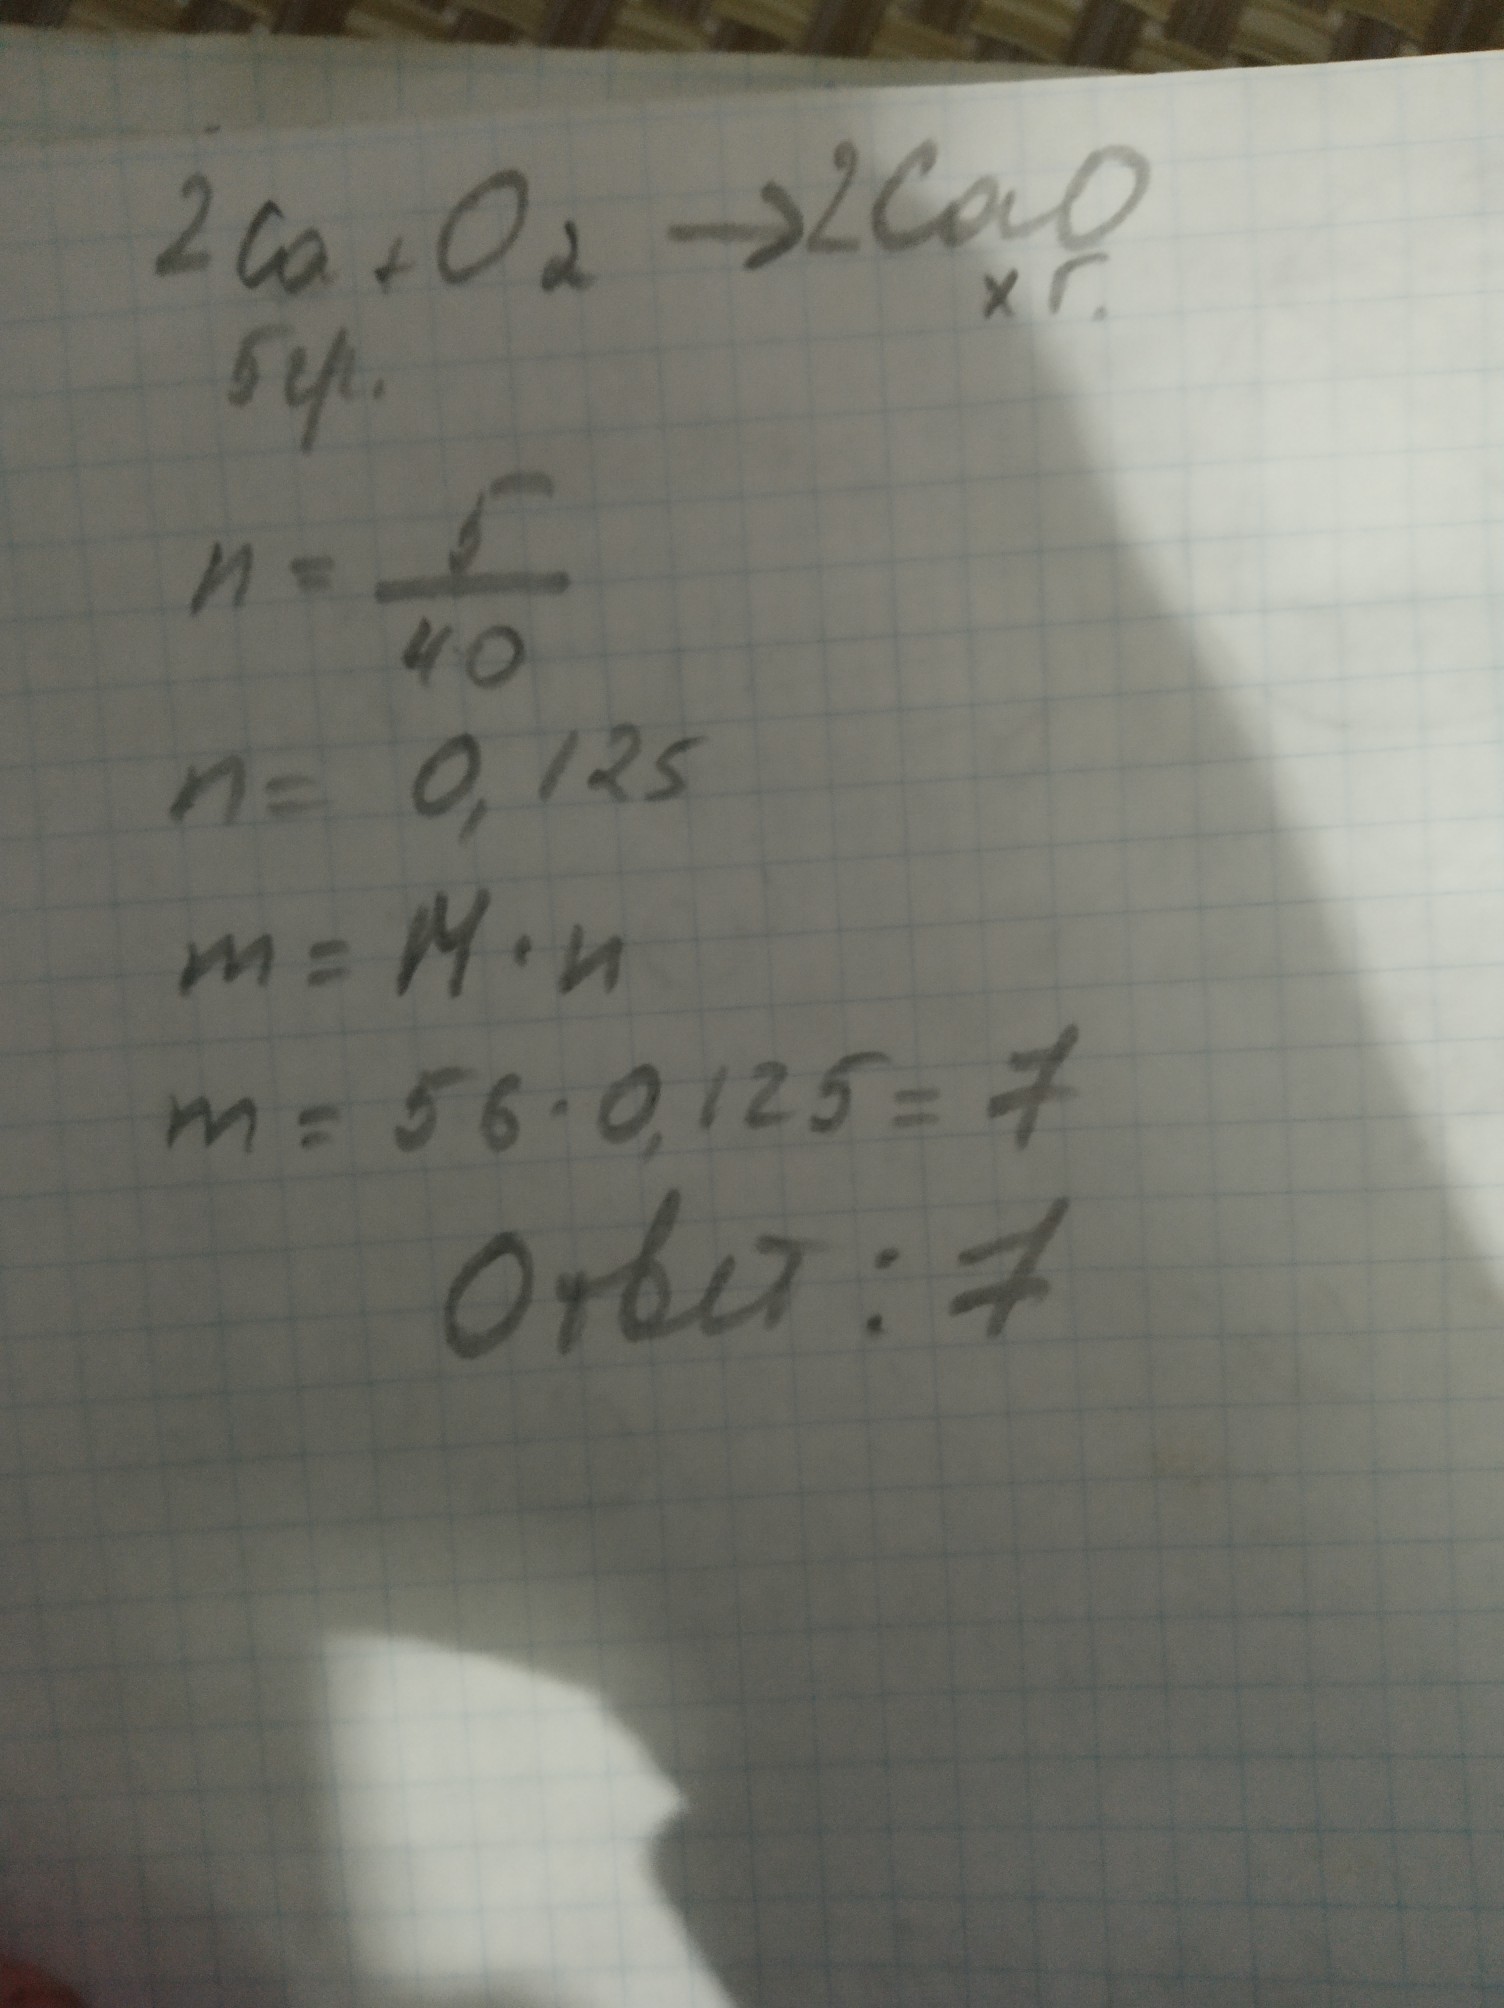 2Ca + O2 → 2CaO
5гр. х г.
n = 5/40
n = 0,125
m = M · n
m = 56 · 0,125 = 7
Ответ : 7